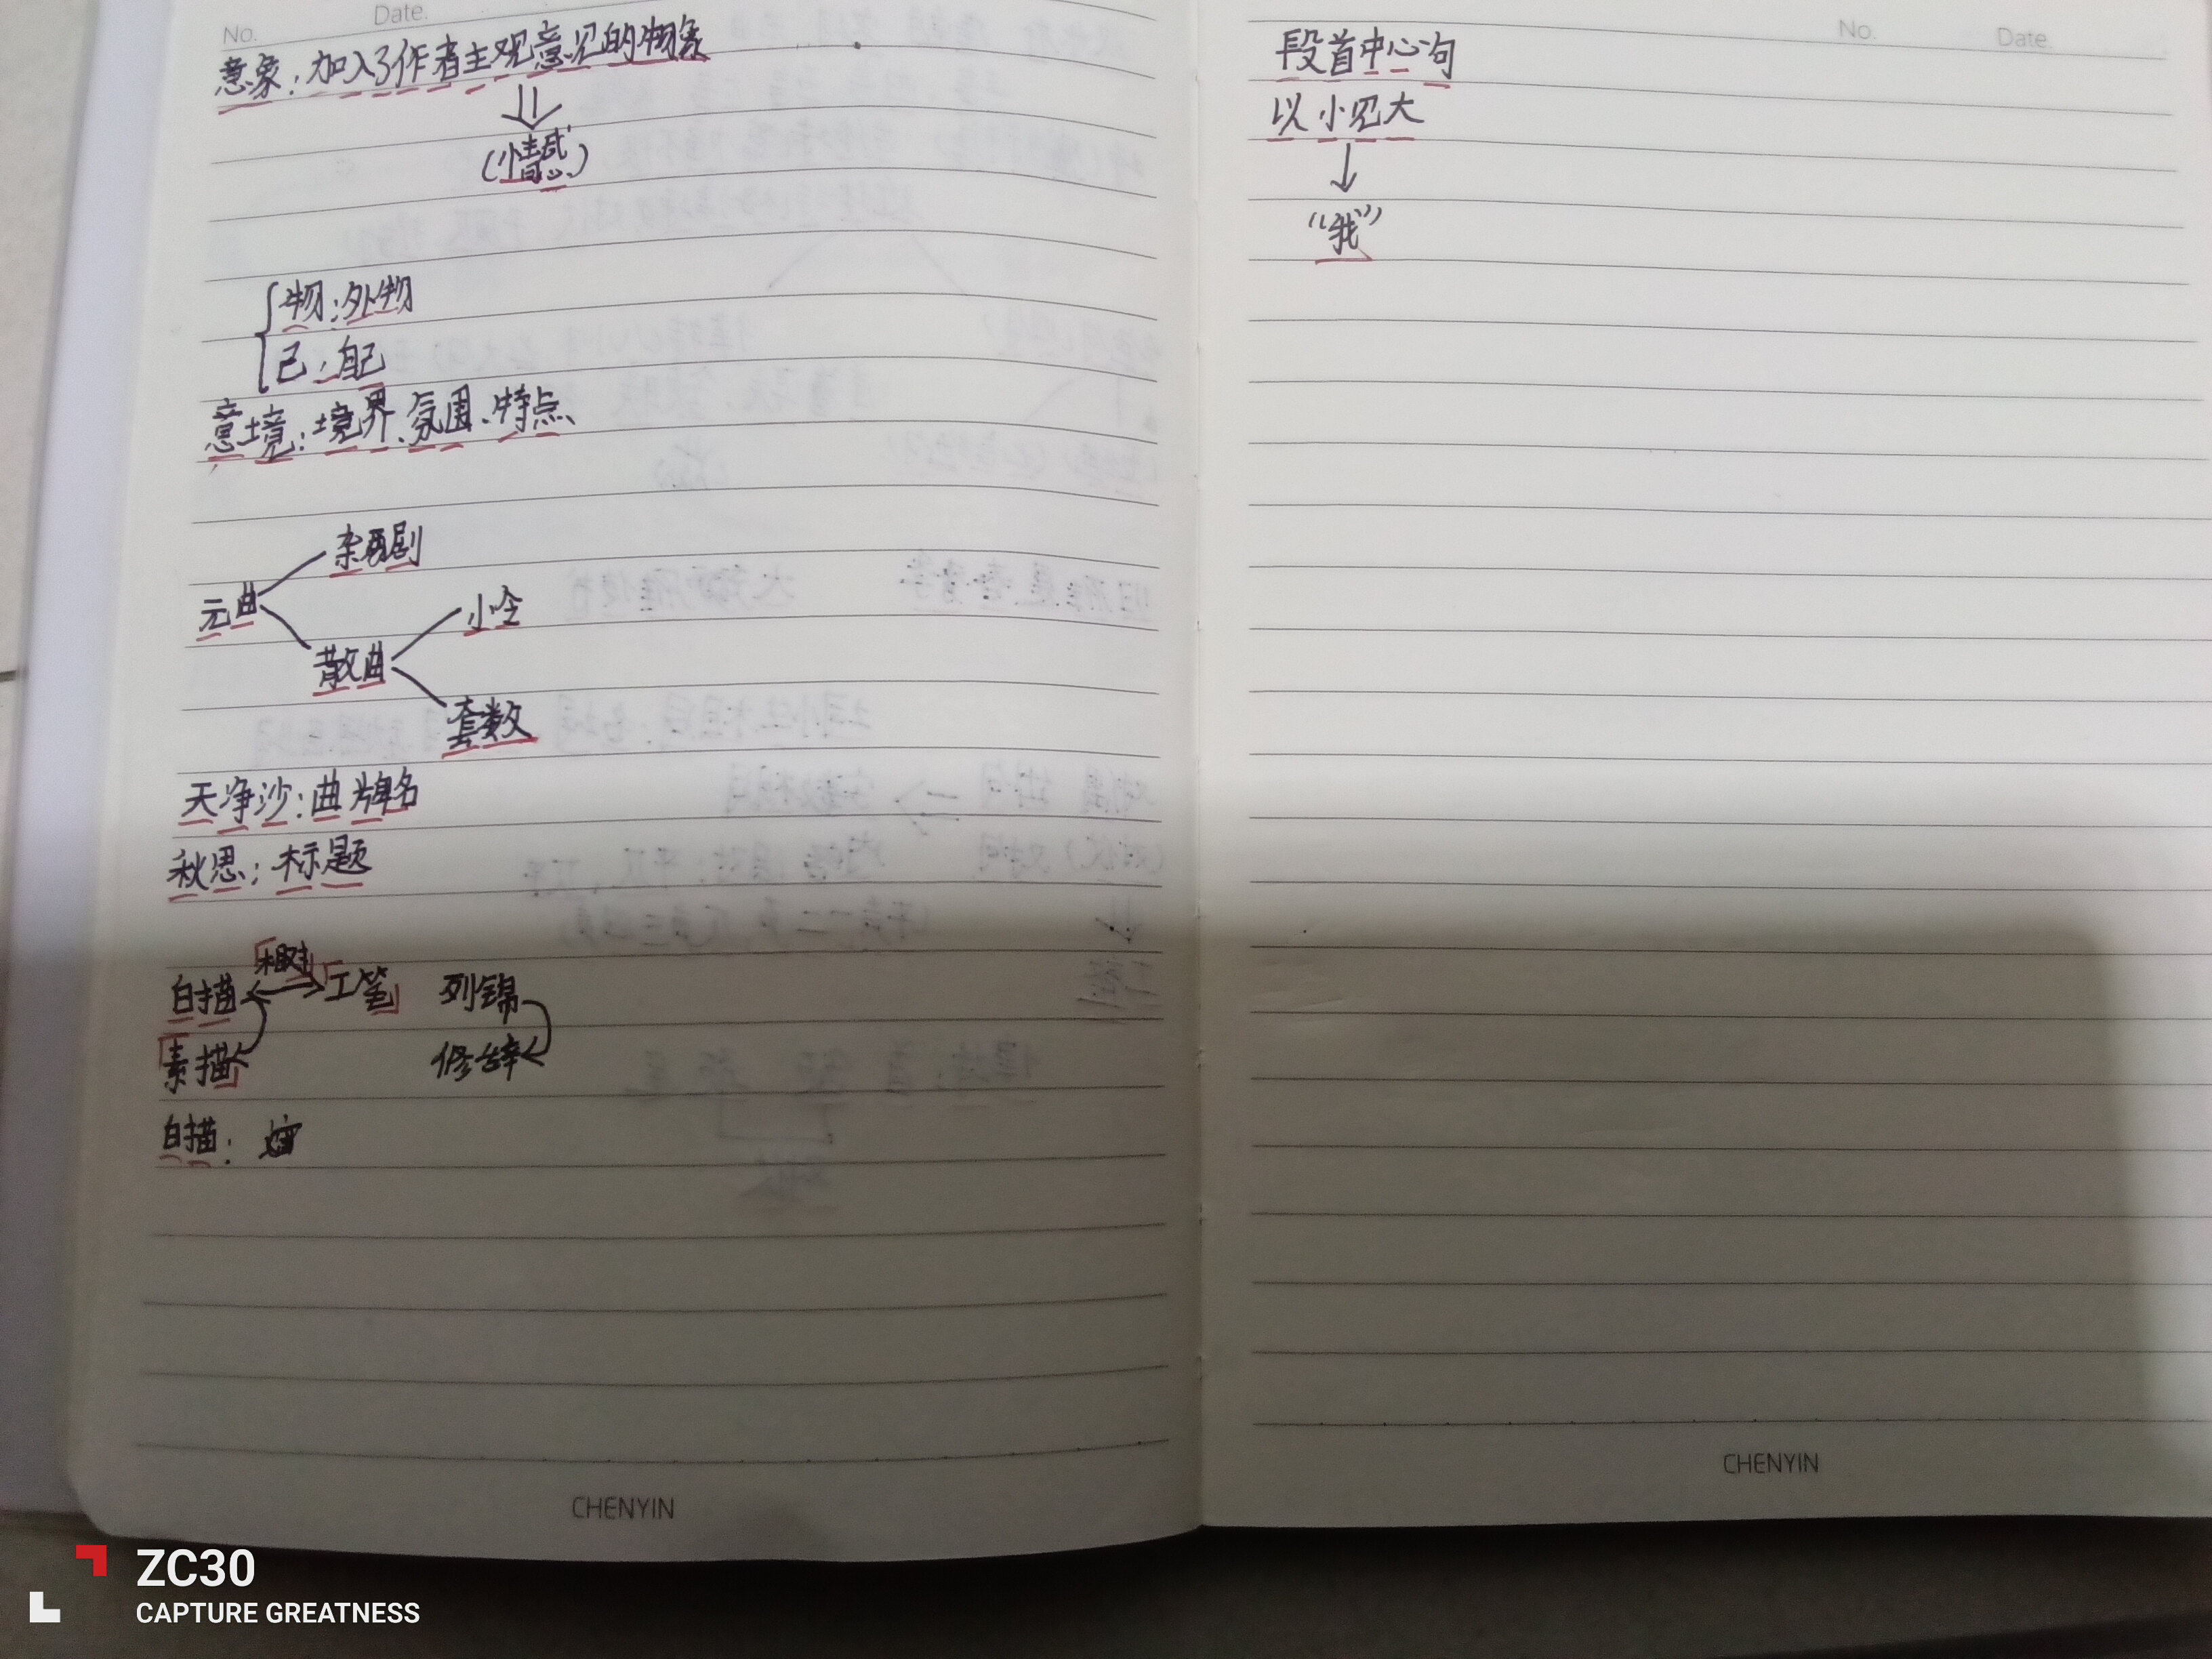 No.
Date.
意象：加入了作者主观意见的物象
（情感）
物：外物
己：自己
意境：境界、氛围、特点
杂剧
元曲
小令
散曲
套数
天净沙：曲牌名
秋思：标题
相对
白描 工笔 列锦
素描 修辞
白描：
CHENYIN
No. Date.
段首中心句
以小见大
“我”
CHENYIN
ZC30
CAPTURE GREATNESS